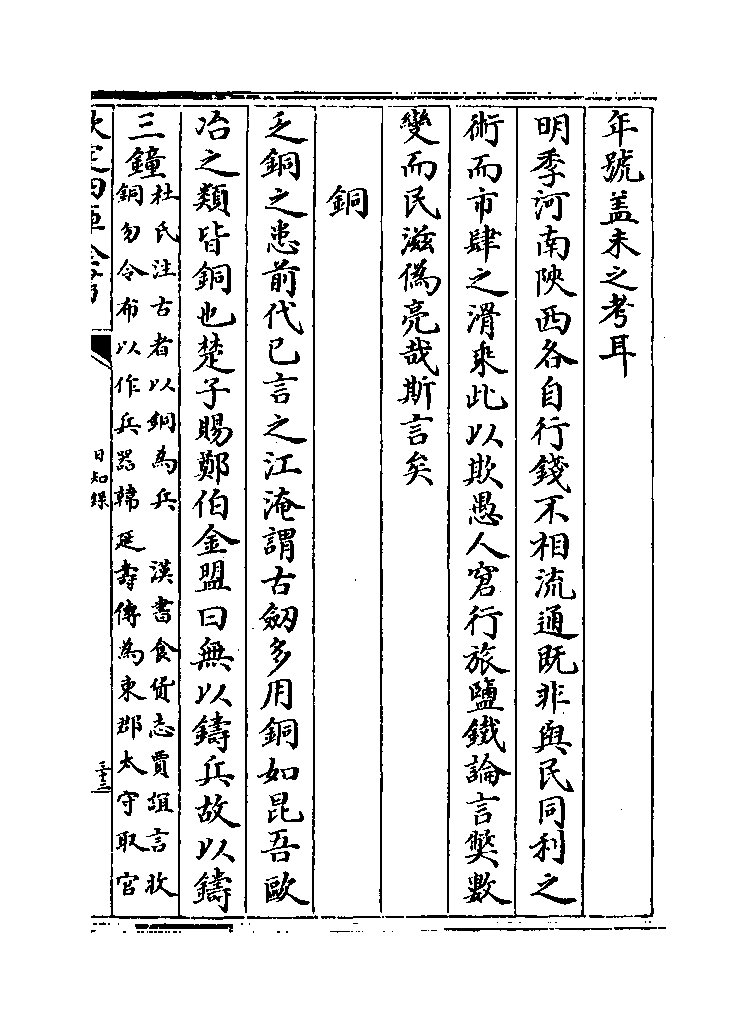 年號盖未之考耳
明季河南陜西各自行錢不相流通既非與民同利之
術而市肆之滑乗此以欺愚人窘行旅鹽鐵論言獘數
變而民滋僞亮哉斯言矣
銅
乏銅之患前代已言之江淹謂古劒多用銅如昆吾歐
冶之類皆銅也楚子賜鄭伯金盟曰無以鑄兵故以鑄
三鐘杜氏注古者以銅為兵 漢書食貨志賈誼言收
銅勿令布以作兵器韓延壽傳為東郡太守取官
日知錄
三十三